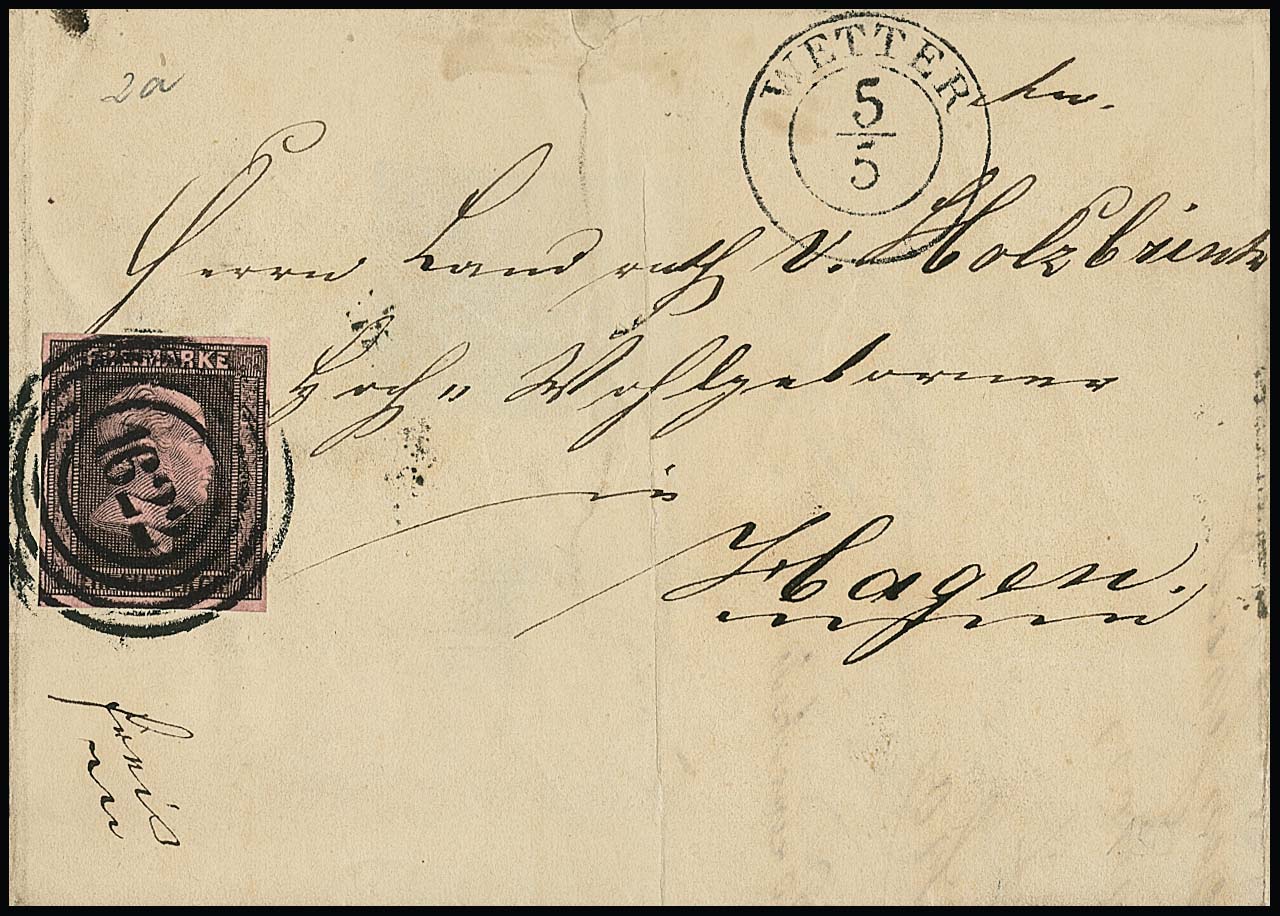 2a
WETTER
5
5
Herrn Landrath v. Holzbrink
Hoch " Wohlgeboren
in
Hagen.
FREIMARKE
1624
frei